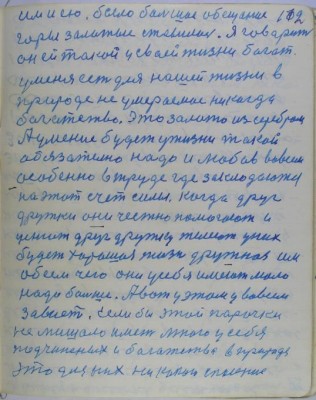 имею, было большое обещание 102
горы золотые ставили. Я говорит
он ей такой у своей жизни богат.
у меня есть для нашей жизни. в
природе не умераемое никогда
богатство. Это золото из серебром
А умение будет у жизни такой
обязателно надо и любов вовсем
особенно в труде где закладают
на этот счет силы, когда друг
дружки они честно помогают и
ценят друг дружку тогда у них
будет хорошая жизь дружная им
обоем чего они у себя имеют мало
надо болше. А вот у этом у вовсем
завист, если бы этой парочки
не мишало имет много у себя
подчиненых и богатство в природе
это для них никакой спасение